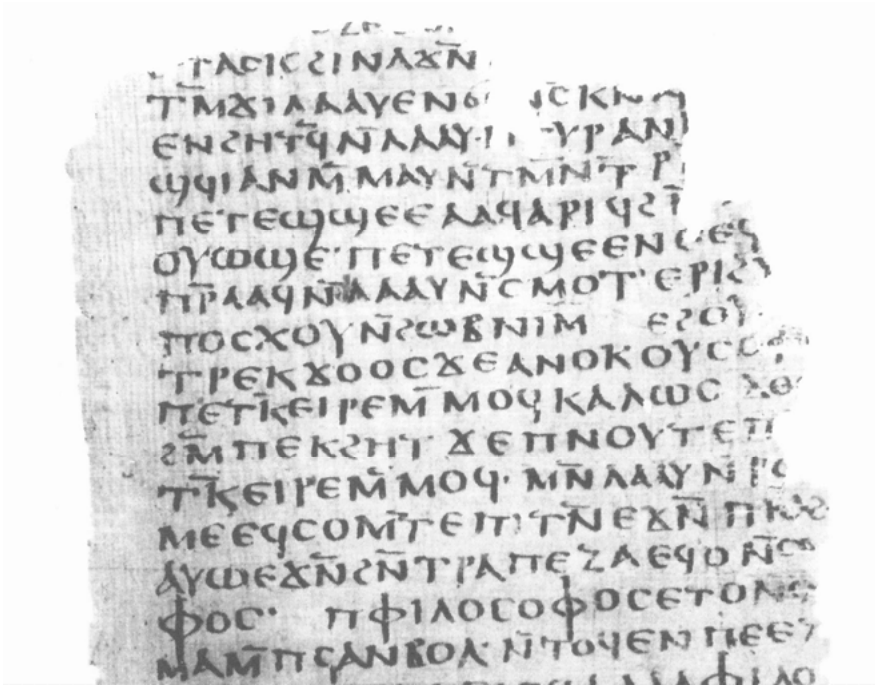 ⲧⲁⲥⲓⲥϩⲓⲛⲁϫⲛ̄
ⲧⲙ̄ϫⲓⲗⲁⲁⲩⲉⲛϭ ⲥⲕ
ⲉⲛϩⲏⲧϥ̄ⲛ̄ⲗⲁⲁⲩ· ⲩⲣⲁⲛ
ϣϥⲓⲁⲛⲙ̄ⲙⲁⲩⲛ̄ⲧⲙⲛ̄ⲧⲣ
ⲡⲉⲧⲉϣϣⲉⲉⲁⲁϥⲁⲣⲓϥϩⲛ̄
ⲟⲩⲱϣⲉ· ⲡⲉⲧⲉϣϣⲉⲉⲛ ⲥⲉϣ
ⲡⲣ̄ⲁⲁϥⲛ̄ⲗⲁⲁⲩⲛ̄ⲥⲙⲟⲧ· ⲉⲣⲓϩ
ⲡⲟⲥϫⲟⲩⲛ̄ϩⲱⲃⲛⲓⲙ ⲉϩⲟⲩ
ⲧⲣⲉⲕϫⲟⲟⲥϫⲉⲁⲛⲟⲕⲟⲩⲥⲟ
ⲡⲉⲧⲕ̄ⲉⲓⲣⲉⲙ̄ⲙⲟϥⲕⲁⲗⲱⲥ ϫⲉ
ϩⲙ̄ⲡⲉⲕϩⲏⲧ ϫⲉⲡⲛⲟⲩⲧⲉⲡ
ⲧⲕ̄ⲉⲓⲣⲉⲙ̄ⲙⲟϥ· ⲙⲛ̄ⲗⲁⲁⲩⲛ̄ⲣⲱ
ⲙⲉⲉϥⲥⲟⲙⲧ̄ⲉⲡⲓⲧⲛ̄ⲉϫⲛ̄ⲡⲕⲁϩ
ⲁⲩⲱⲉϫⲛ̄ϩⲛ̄ⲧⲣⲁⲡⲉⲍⲁⲉϥⲟⲛ̄ⲥⲟ
ⲫⲟⲥ· ⲡⲫⲓⲗⲟⲥⲟⲫⲟⲥⲉⲧⲟⲛⲥ
ⲙⲁⲙ̄ⲡⲥⲁⲛⲃⲟⲗ· ⲛ̄ⲧⲟϥⲉⲛⲡⲉⲉⲧ
ⲁⲫⲓⲗⲟ